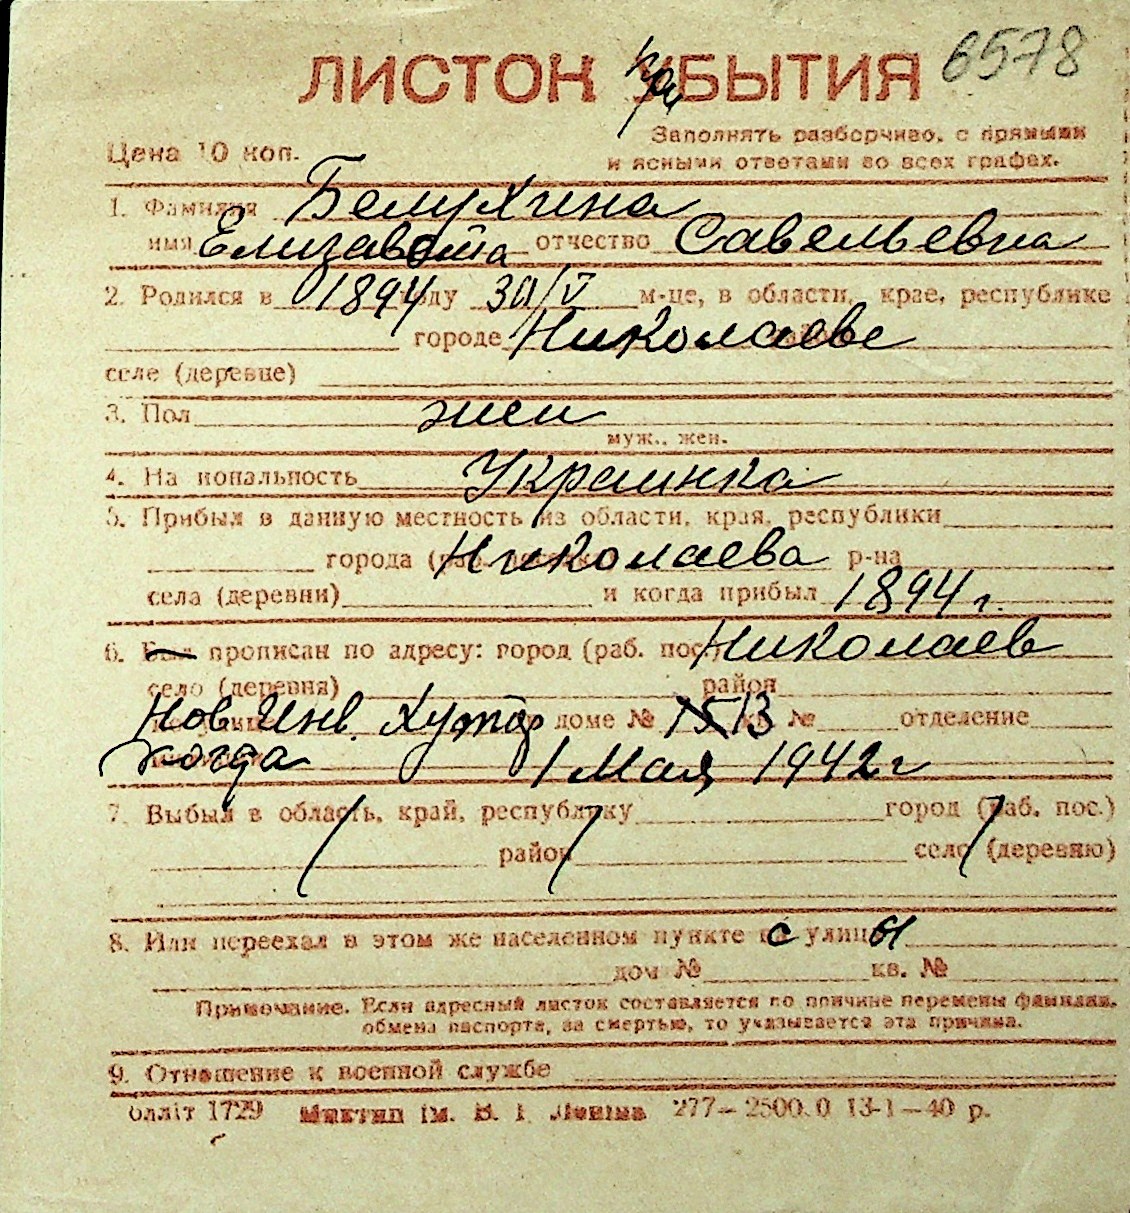 6578
ЛИСТОК ПРИБЫТИЯ
Цена 10 коп.
Заполнять разборчиво, с прямыми
и ясными ответами во всех графах.
1. Фамилия Белухина
имя Елизавета отчество Савельевна
2. Родился в 1894 году 30/V м-це, в области, крае, республике
городе Николаеве
селе (деревне)
3. Пол жен
муж., жен.
4. Национальность Украинка
5. Прибыл в данную местность из области, края, республики
города (раб. поселка) Николаева р-на
села (деревни) и когда прибыл 1894 г.
6. Был прописан по адресу: город (раб. пос.) Николаев
село (деревня) район
Нов. Инв. Хутор доме № 15 13 кв. № отделение
когда 1 Мая 1942 г
7. Выбыл в область, край, республику город (раб. пос.)
район село (деревню)
8. Или переехал в этом же населенном пункте с улицы
дом № кв. №
Примечание. Если адресный листок составляется по причине перемены фамилии,
обмена паспорта, за смертью, то указывается эта причина.
9. Отношение к военной службе
Обліт 1729 Миктип ім. В. І. Леніна 277—2500.0 13-1—40 р.